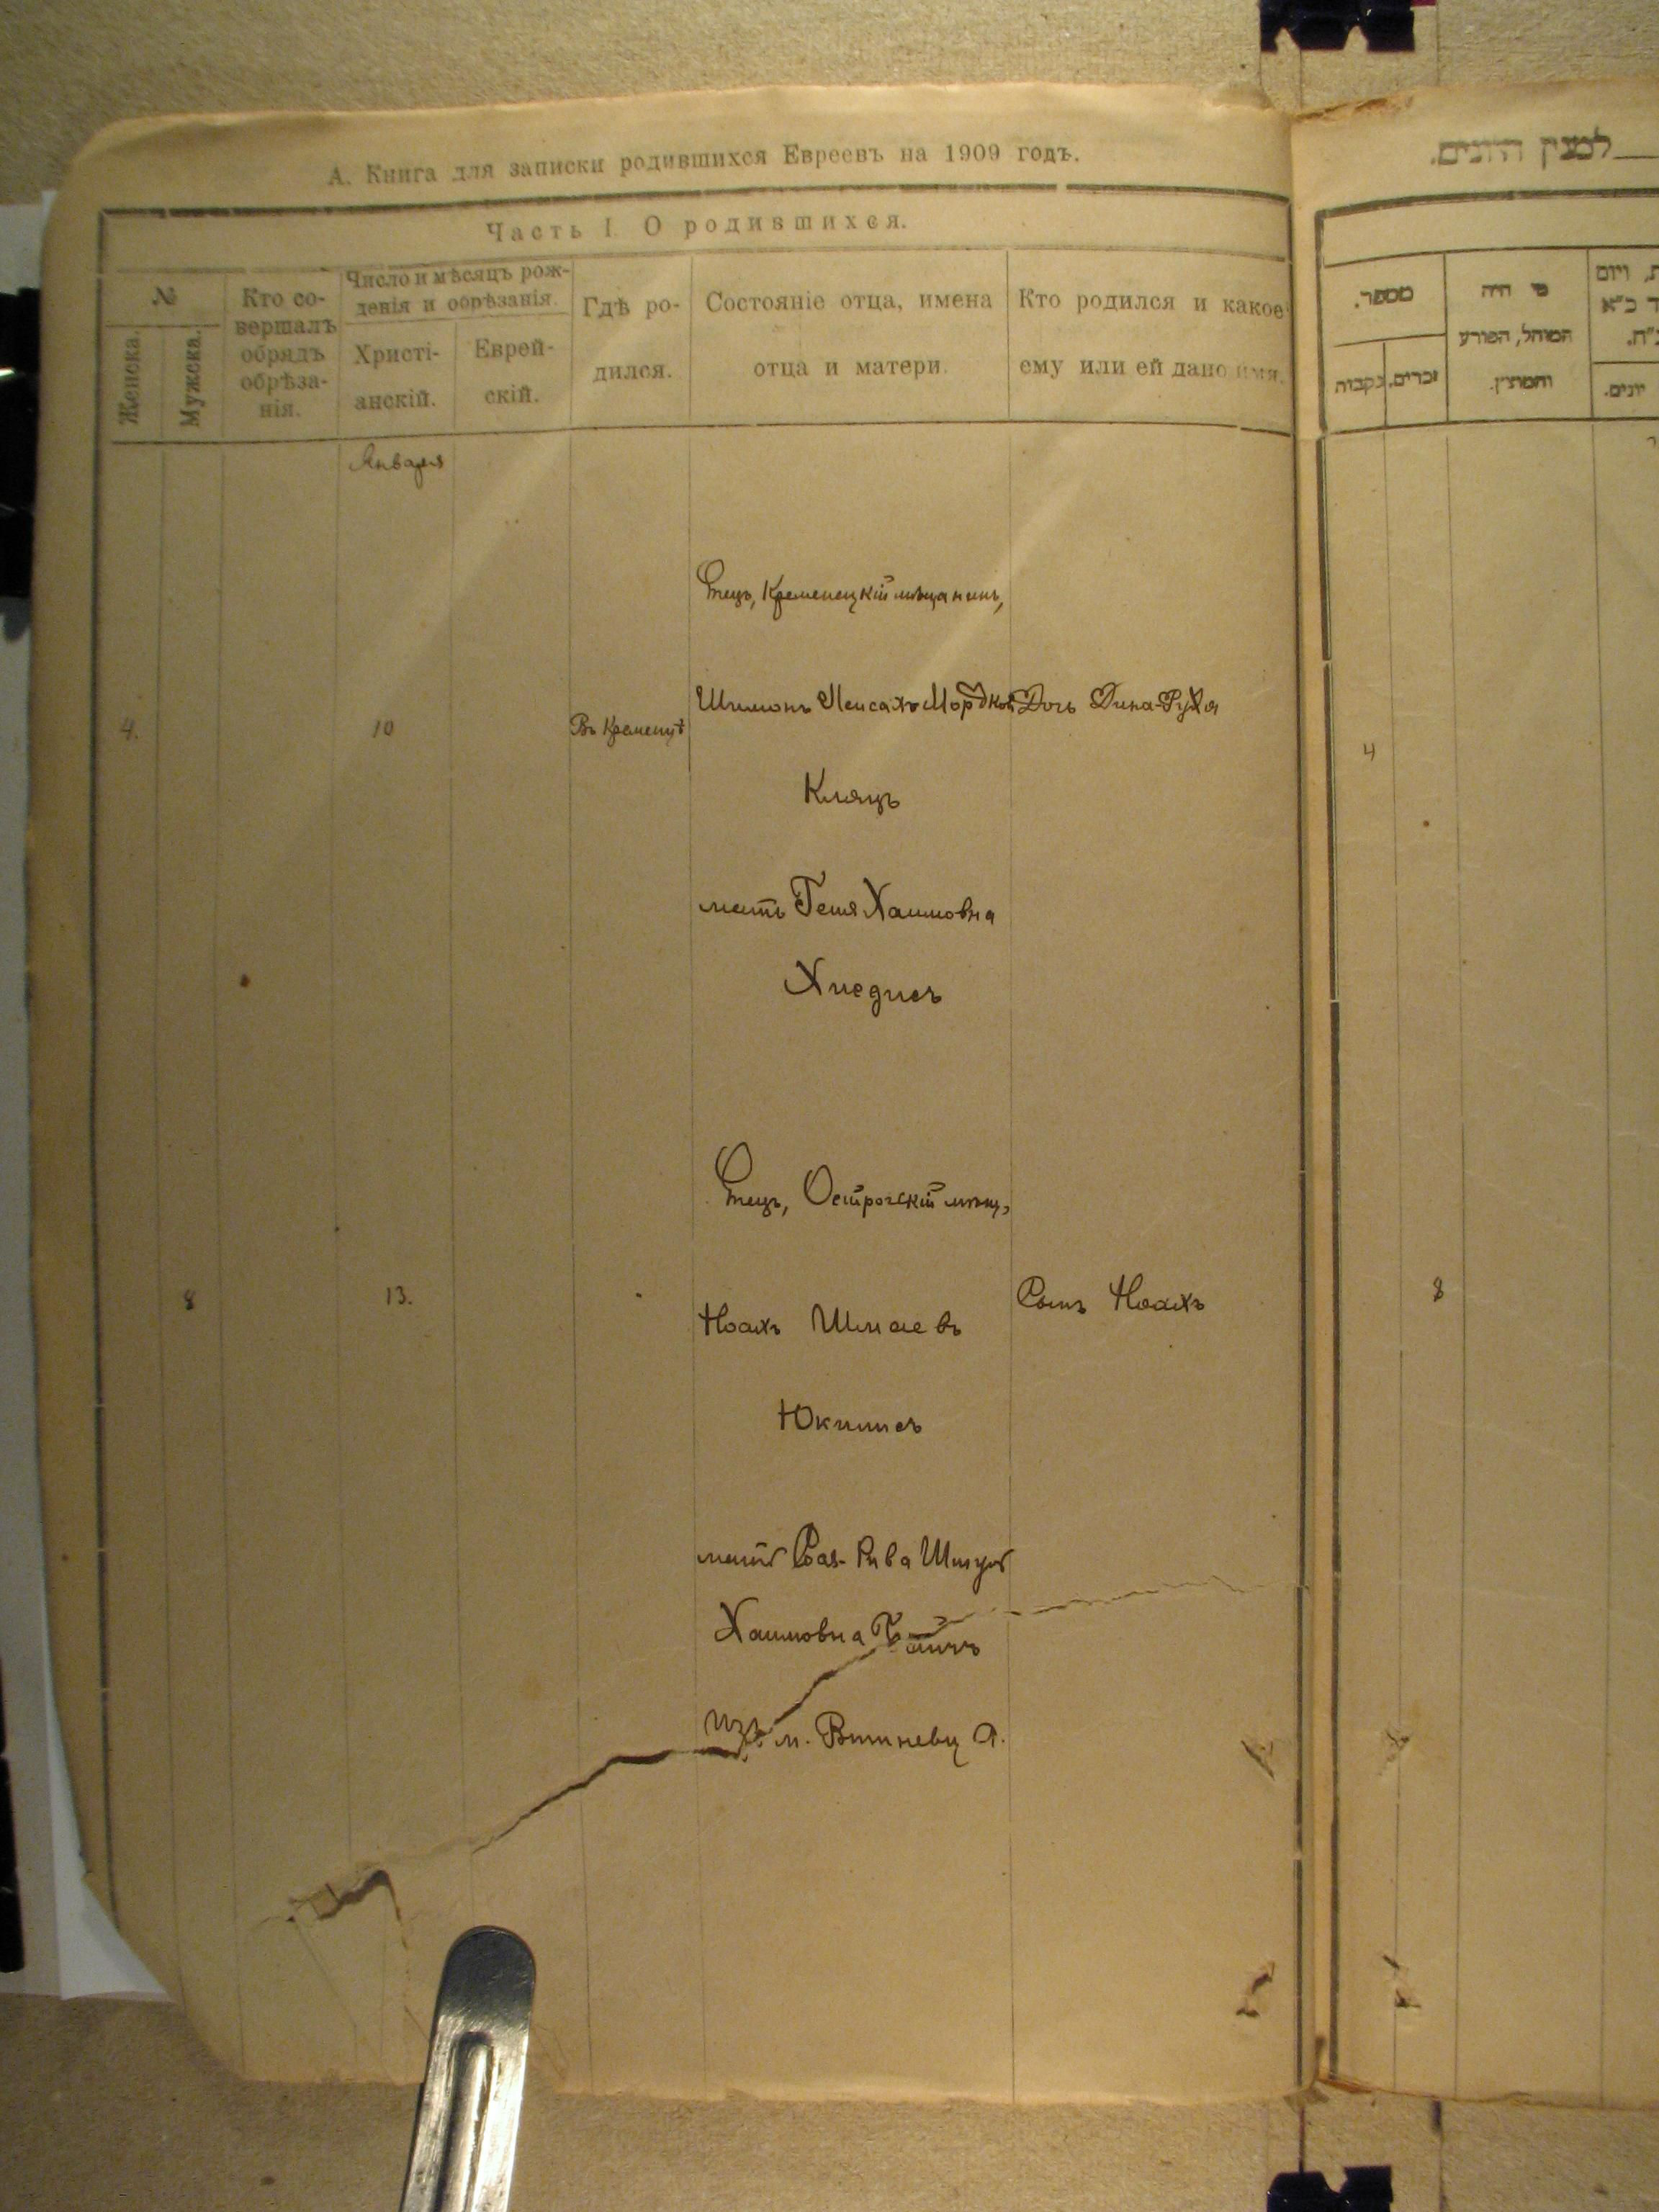 А. Книга для записки родившихся Евреевъ на 1909 годъ.
Часть I О родившихся.
№
Женска.
Мужска.
Кто со-
вершалъ
обрядъ
обрѣза-
нія.
Число и мѣсяцъ рож-
денія и обрѣзанія.
Христі-
анскій.
Еврей-
скій.
Гдѣ ро-
дился.
Состояніе отца, имена
отца и матери.
Кто родился и какое
ему или ей дано имя.
Января
4.
10
Въ Кременцѣ
Отецъ, Кременецкій мѣщанинъ,
Шимонъ Пейсахъ Мордков
Кляцъ
мать Геня Хаимовна
Дочь Дина-Рухля
8
13.
Отецъ, Острогскій мѣщ,
Ноахъ Шмаевъ
Юкилисъ
мать Рива
Хаимовна
изъ м. Вишневца.
Сынъ Ноахъ
למנין היונים.
מספר.
זכרים.
נקבות
מי היה
המוהל, הפורע
והמוצץ.
יונים.
4
8